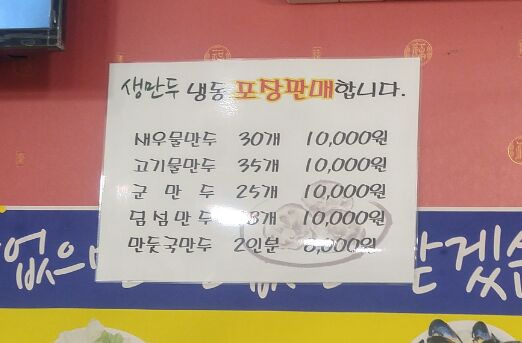 생만두 냉동 포장판매합니다.
새우물만두 30개 10,000원
고기물만두 35개 10,000원
군만두 25개 10,000원
딤섬만두 10,000원
만둣국만두 2인분
없으